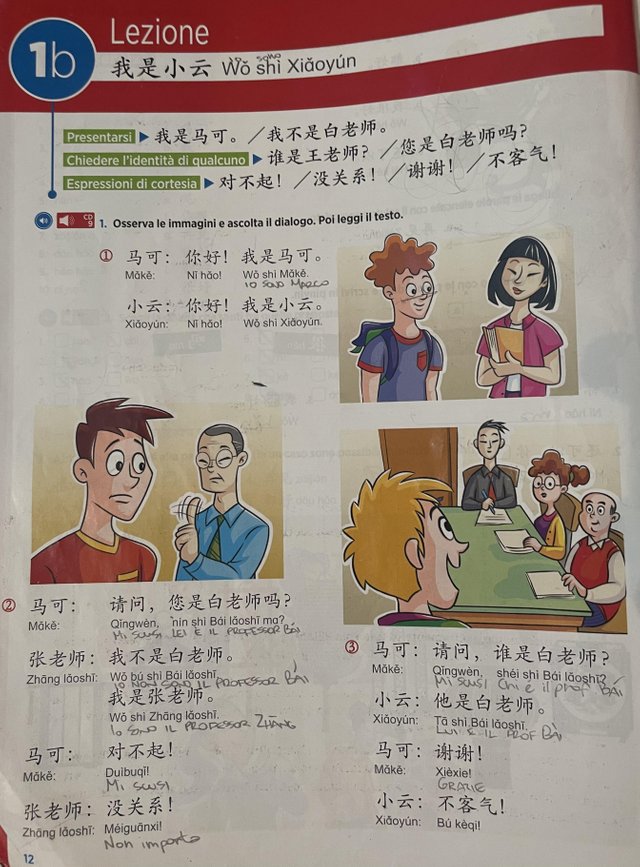 Lezione
1b
sono
我是小云 Wǒ shì Xiǎoyún
Presentarsi 我是马可。／我不是白老师。
Chiedere l'identità di qualcuno 谁是王老师？／您是白老师吗？
Espressioni di cortesia 对不起！／没关系！／谢谢！／不客气！
CD 9
1. Osserva le immagini e ascolta il dialogo. Poi leggi il testo.
① 马可： 你好！ 我是马可。
Mǎkě: Nǐ hǎo! Wǒ shì Mǎkě.
IO SONO MARCO
小云： 你好！ 我是小云。
Xiǎoyún: Nǐ hǎo! Wǒ shì Xiǎoyún.
② 马可： 请问，您是白老师吗？
Mǎkě: Qǐngwèn, nín shì Bái lǎoshī ma?
MI SCUSI LEI È IL PROFESSOR BÁI
张老师： 我不是白老师。
Zhāng lǎoshī: Wǒ bú shì Bái lǎoshī.
IO NON SONO IL PROFESSOR BÁI
我是张老师。
Wǒ shì Zhāng lǎoshī.
IO SONO IL PROFESSOR ZHĀNG
马可： 对不起！
Mǎkě: Duìbuqǐ!
MI SCUSI
张老师： 没关系！
Zhāng lǎoshī: Méiguānxi!
Non importa
③ 马可： 请问，谁是白老师？
Mǎkě: Qǐngwèn, shéi shì Bái lǎoshī?
MI SCUSI Chi è il prof BÁI
小云： 他是白老师。
Xiǎoyún: Tā shì Bái lǎoshī.
LUI È IL PROF BÀI
马可： 谢谢！
Mǎkě: Xièxie!
GRAZIE
小云： 不客气！
Xiǎoyún: Bú kèqi!
12